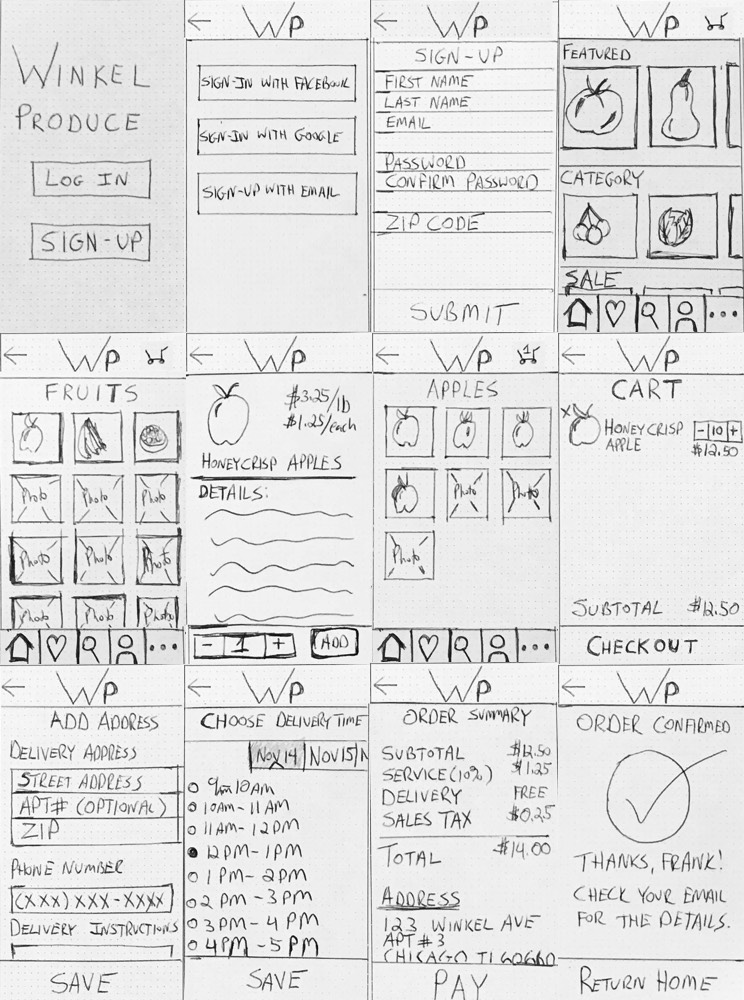 WINKEL
PRODUCE
LOG IN
SIGN-UP
WP
SIGN-IN WITH FACEBOOK
SIGN-IN WITH GOOGLE
SIGN-UP WITH EMAIL
WP
SIGN-UP
FIRST NAME
LAST NAME
EMAIL
PASSWORD
CONFIRM PASSWORD
ZIP CODE
SUBMIT
WP
FEATURED
CATEGORY
SALE
WP
FRUITS
Photo Photo Photo
Photo Photo Photo
Photo Photo Photo
WP
$3.25/lb
$1.25/each
HONEYCRISP APPLES
DETAILS:
- 1 + ADD
WP 1
APPLES
Photo Photo
Photo
WP
CART
X HONEYCRISP - 10 +
APPLE $12.50
SUBTOTAL $12.50
CHECKOUT
WP
ADD ADDRESS
DELIVERY ADDRESS
STREET ADDRESS
APT# (OPTIONAL)
ZIP
PHONE NUMBER
(XXX) XXX-XXXX
DELIVERY INSTRUCTIONS
SAVE
WP
CHOOSE DELIVERY TIME
NOV 14 NOV 15 N
10AM
10AM-11AM
11AM-12PM
12PM-1PM
1PM-2PM
2PM-3PM
3PM-4PM
4PM-5PM
SAVE
WP
ORDER SUMMARY
SUBTOTAL $12.50
SERVICE (10%) $1.25
DELIVERY FREE
SALES TAX $0.25
TOTAL $14.00
ADDRESS
123 WINKEL AVE
APT #3
CHICAGO
PAY
WP
ORDER CONFIRMED
THANKS, FRANK!
CHECK YOUR EMAIL
FOR THE DETAILS.
RETURN HOME